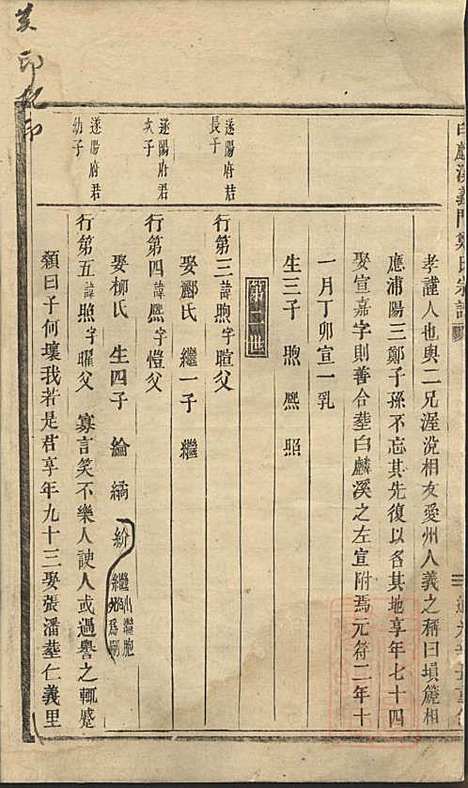 白麟溪義門鄭氏宗譜
孝謹人也與二兄渥涗相友愛州人義之稱曰塤篪相
應浦陽三鄭子孫不忘其先復以名其地享年七十四
娶宣嘉字則善合塟白麟溪之左宣附焉元符二年十
一月丁卯宣一乳
生三子 煦 熈 照
遂陽府君
長子
行第三諱煦字暄父
娶酈氏 繼一子 繼
遂陽府君
次子
行第四諱熈字愷父
娶柳氏 生四子 綸 縞 紛 繼
遂陽府君
幼子
行第五諱照字曜父 寡言笑不樂人諛人或過譽之輒蹙
頞曰子何壞我若是君享年九十三娶張潘塟仁義里
印
印